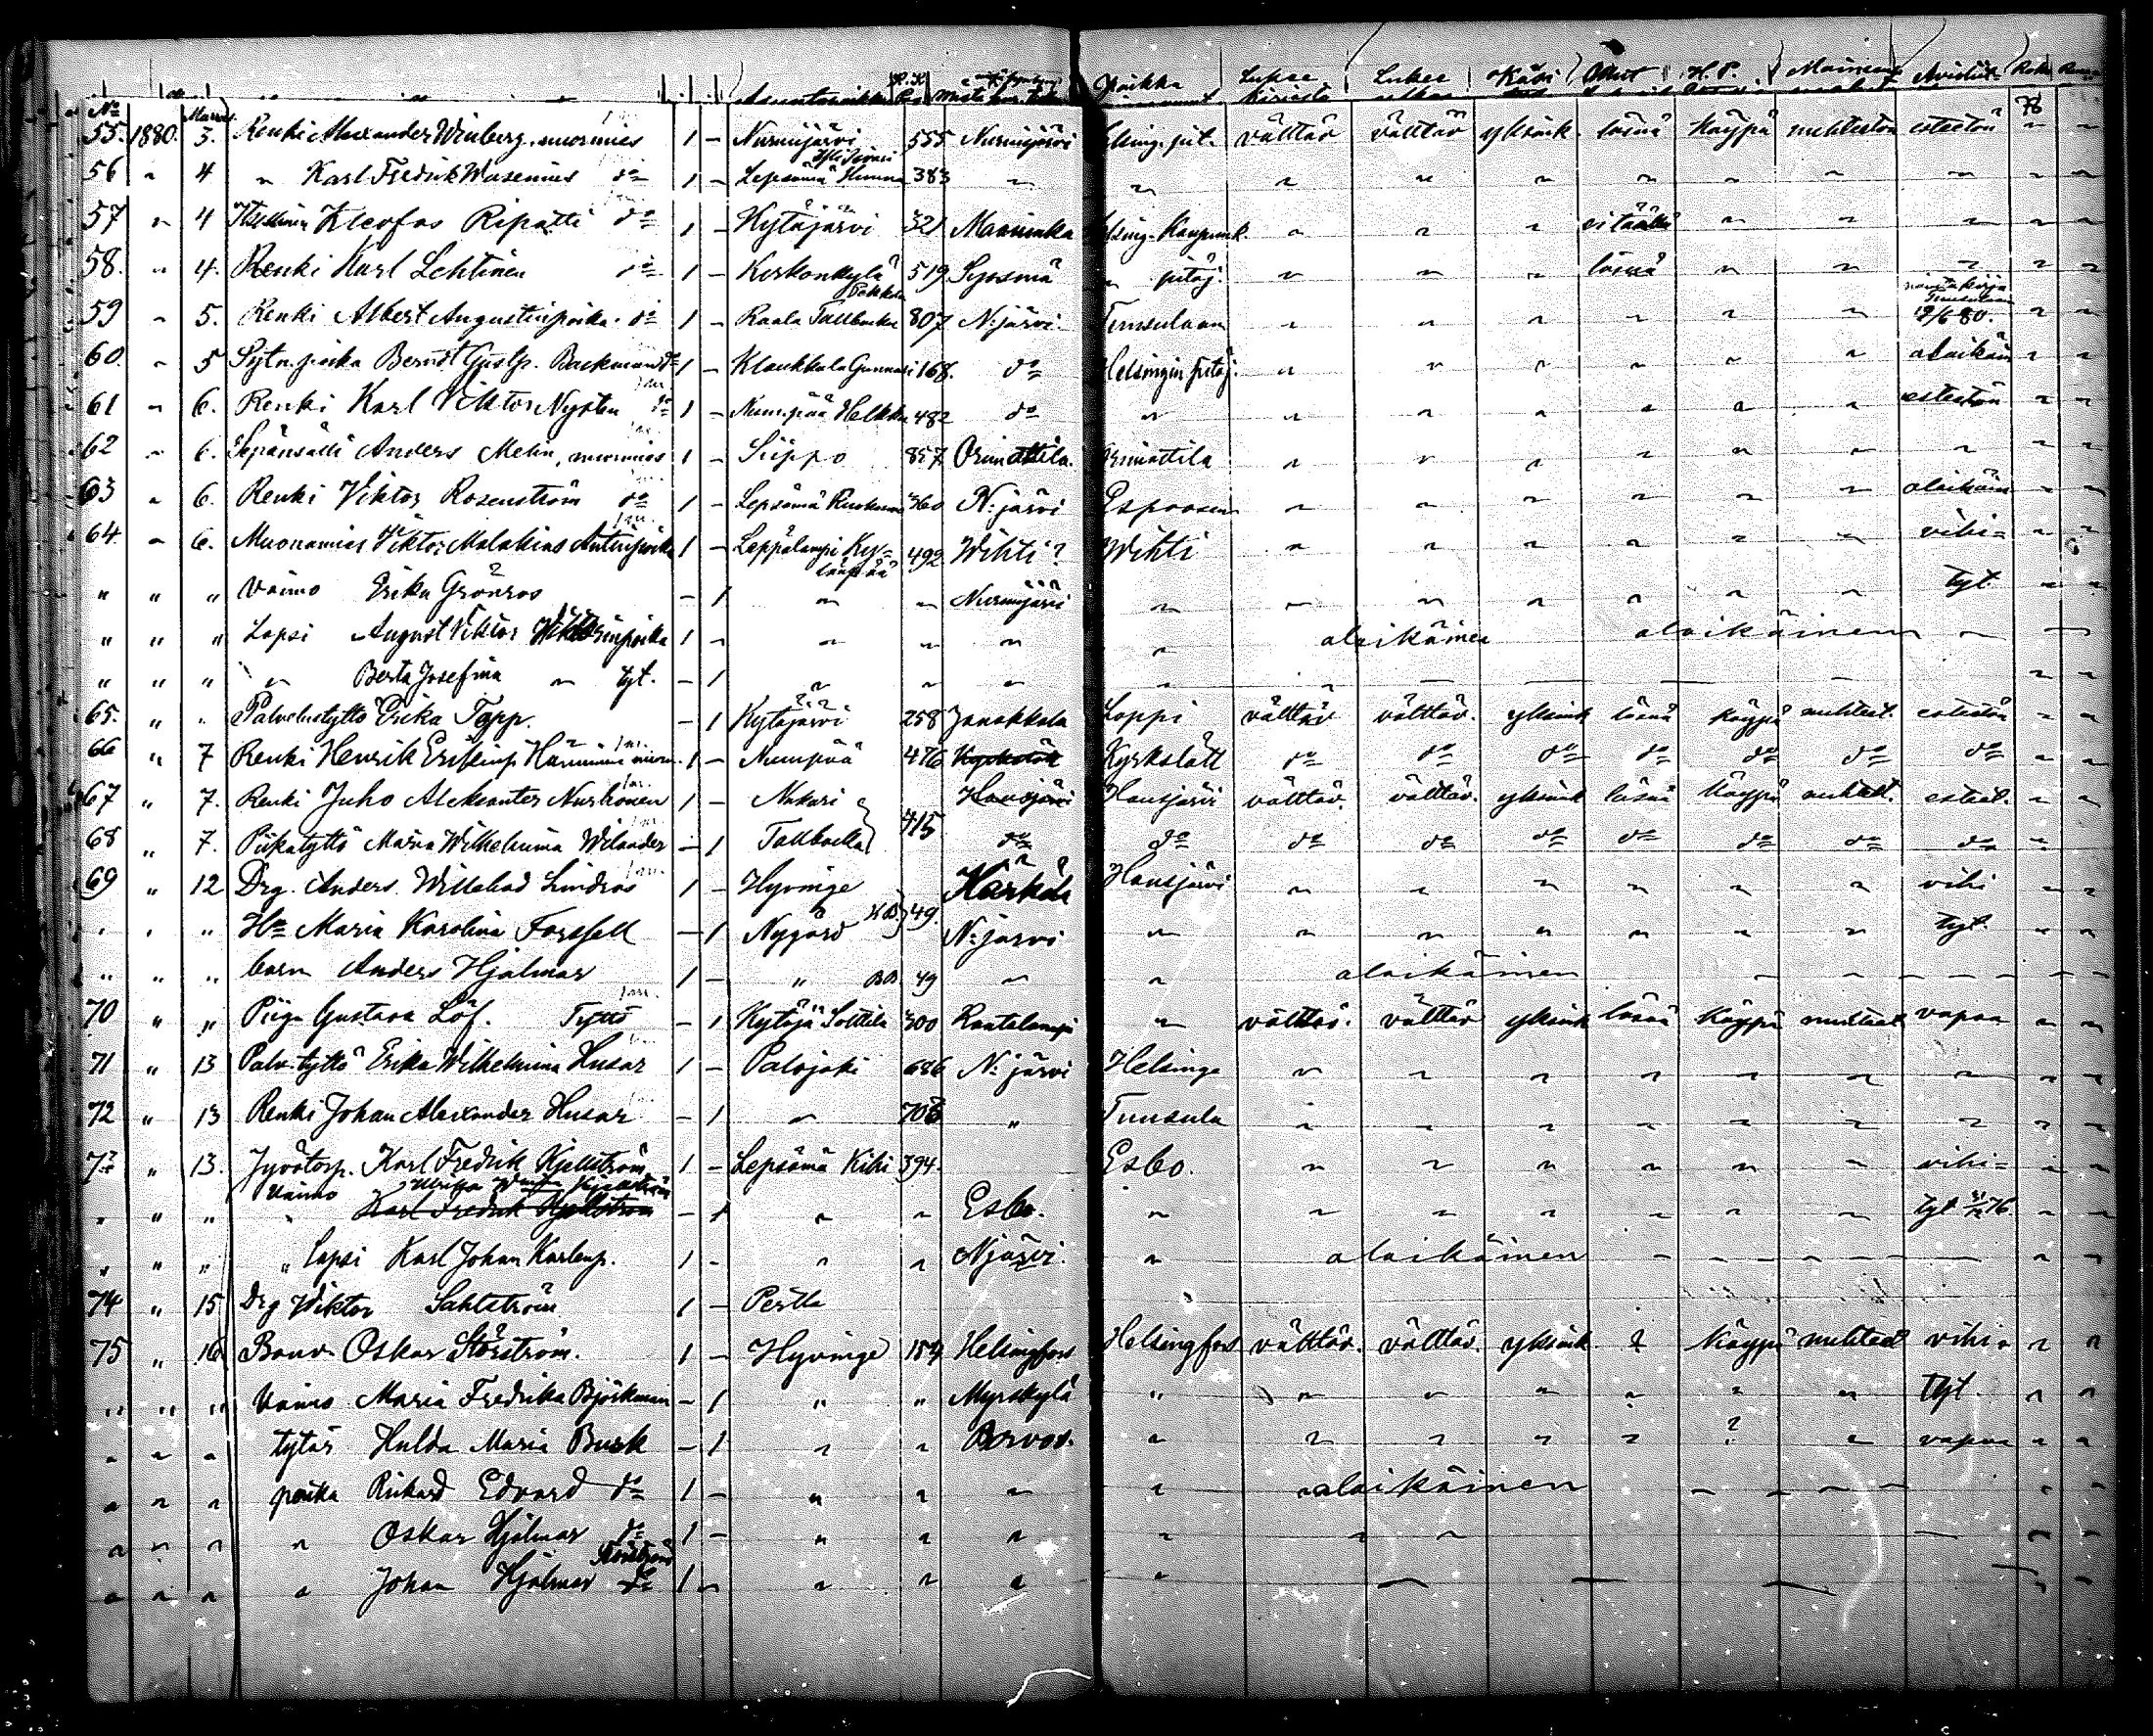 Asuntopaikka Mistä Paikka Lukee Lukee Käsi H. P. Maineen Avioliit. Rok.
No Marras 78
55. 1880. 3. Renki Alexander Winberg. nuorimies 1 – Nurmijärvi 555 Nurmijärvi Helsing. pit. välttäv välttäv yksink. läsnä Käypä nuhteeton esteetön " "
56 " 4 " Karl Fredrik Wasenius do 1 – Lepsämä 383 " " " " " " " " " " "
57 " 4 Kleofas Ripatti do 1 – Kytäjärvi 321 Maaninka Helsing. Kaupunk. " " " ei täällä " " " " "
58. " 4. Renki Karl Lehtinen do 1 – Kirkonkylä 519 Sysmä " pitäj. " " " läsnä " " " " "
Pekkala Tuusulaan
59 " 5. Renki Albert Augustinpoika. do 1 – Raala Tallbacka 807 N:järvi. Tuusulaan " " " " " " 12/6 80. " "
60. " 5 Sytn. poika Berndt Gustfp. Backman do 1 – Klaukkala Gunnari 168. do Helsingin pitäj. " " " " " " alaikäin " "
61 " 6. Renki Karl Viktor Nysten do 1 – Num.pää Heikka 482 do " " " " " " " esteetön " "
62 " 6. Sepänsälli Anders Melin, nuorimies 1 – Siippo 857 Orimattila. Orimattila " " " " " " " " "
63 " 6. Renki Viktor Rosenström do 1 – Lepsämä 360 N:järvi Espoosen " " " " " " alaikäin " "
64. " 6. Muonamies Viktor Malakias Antinpoika 1 – Leppälampi 492 Wihti? Wihti " " " " " " vihi= " "
" " " Vaimo Erika Grönroos – 1 " " Nurmijärvi " " " " " " " tyt. " "
" " " Lapsi August Viktor Viktorinpoika 1 – " " " " alaikäinen alaikäinen " –
" " " " Berta Josefina " tyt. – 1 " " " " " – – – – – " "
65. " " Palvelustyttö Erika Tapp. – 1 Kytäjärvi 258 Janakkala Loppi välttäv välttäv. yksink läsnä käypä nuhteet. esteetön " "
66 " 7 Renki Henrik Erikinp. 1 – Numpää 476 Kyrkslätt Kyrkslätt do do do do do do do " "
67 " 7. Renki Juho Aleksanter Nurhonen 1 – Nukari Hausjärvi Hausjärvi välttäv. välttäv. yksink läsnä Käypä nuhteet. esteet. " "
68 " 7. Piikatyttö Maria Wilhelmina Wilander – 1 Tallbacka 715 do do do do do do do do do "
69 " 12 Drg. Anders Willehad Lindroos 1 – Hyvinge Kärkölä Hausjärvi " " " " " " vihi " "
" " " Hu Maria Karolina Forssell – 1 Nygård 49. N:järvi " " " " " " " tyt. " "
" " " barn Anders Hjalmar 1 – " BB. 49 " " alaikäinen – – – – –
70 " " Piiga Gustava Löf. Tyttö – 1 Kytäjä Solttila 300 Rautalampi " välttäv. välttäv yksink läsnä Käypä nuhteet vapaa " "
71 " 13 Palv. tyttö Erika Wilhelmina Husar 1 – Palojoki 686 N:järvi Helsinge " " " " " " " " "
72 " 13 Renki Johan Alexander Husar – 1 " 706 " Tuusula " " " " " " " " "
73 " 13. Jyvätorp. Karl Fredrik Kjellström 1 – Lepsämä Kihi 394. Esbo. " " " " " " vihi= " "
" " " Vaimo Ulrika Karl Fredrik Kjellström – 1 " " Esbo. " " " " " " " tyt 31/12 76. " "
" " " " Lapsi Karl Johan Karlenp. 1 – " " N:järvi. " alaikäinen – – – – " "
74 " 15 Drg Wiktor Sahlström 1 – Perttu
75 " 16 Banv. Oskar Storström. 1 – Hyvinge 154 Helsingfors Helsingfors välttäv. välttäv. yksink ? Käypä nuhteet vihi= " "
" " " Vaimo Maria Fredrika Björkman – 1 " " Myrskylä " " " " " " " Tyt. " "
" " " tytär Hulda Maria Busk – 1 " " Borvoo. " " " " " ? " vapaa " "
" " " poika Rickard Edvard do 1 – " " " " alaikäinen – – – – " "
" " " " Oskar Hjalmar do 1 – " " " " " " – " "
Storström
" " " " Johan Hjalmar do 1 – " " " " – – – – " "